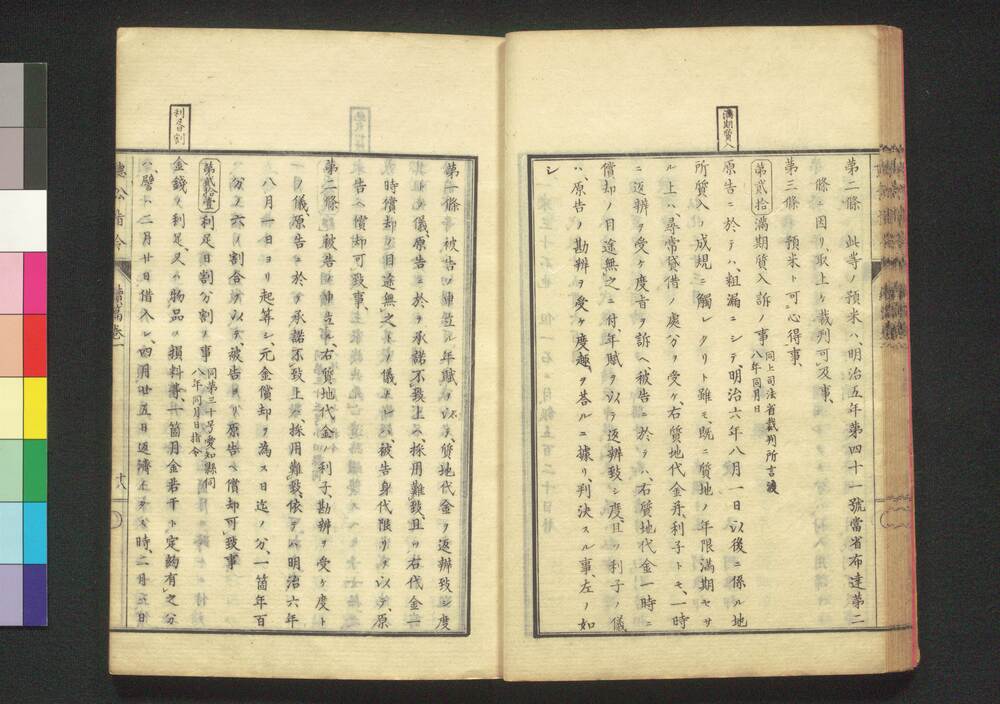 滿期質入
第二條 此等ノ預米ハ、明治五年第四十一號當省布達第二
條ニ因リ、取上ケ裁判可及事、
第三條 預米ト可心得事、
第貳拾 滿期質入訴ノ事 同上司法省裁判所言渡
八年同月日
原告ニ於テハ、粗漏ニシテ明治六年八月一日以後ニ係ル地
所質入ノ成規ニ觸レタリト雖モ、既ニ質地ノ年限滿期セサ
ル上ハ、尋常貸借ノ處分ヲ受ケ、右質地代金并利子トモ、一時
ニ返辨ヲ受ケ度旨ヲ訴ヘ被告ニ於テハ、右質地代金一時ニ
償却ノ目途無之ニ付、年賦ヲ以テ返辨致シ度、且ツ利子ノ儀
ハ、原告ノ勘辨ヲ受ケ度趣ヲ答ルニ據リ、判決スル事、左ノ如
シ
第一條 被告ノ申立ル年賦ヲ以、質地代金ヲ返辨致シ度
トノ儀、原告ニ於テ承諾不致上ハ、採用難致、且ツ右代金一
時償却ノ目途無之トノ儀ナレハ、被告身代限リヲ以テ、原
告ヘ償却可致事、
第二條 被告ノ申立ル、右質地代金ノ利子、勘辨ヲ受ケ度ト
ノ儀、原告ニ於テ承諾不致上ハ、採用難致、依テハ明治六年
八月一日ヨリ起算シ、元金償却ヲ為ス日迄ノ分、一箇年百
分ノ六ノ割合ヲ以テ、被告ヨリ原告ヘ償却可致事
利息割
第貳拾壹 利足日割分割ノ事 同第三十号愛知縣伺
八年同月日指令
金錢ノ利足、又ハ物品ノ損料等、一箇月金若干ト定約有之分
ハ、譬ヘハ二月廿日借入シ、四月廿五日返濟セントスル時、二月五日
聴訟指令 續篇卷一